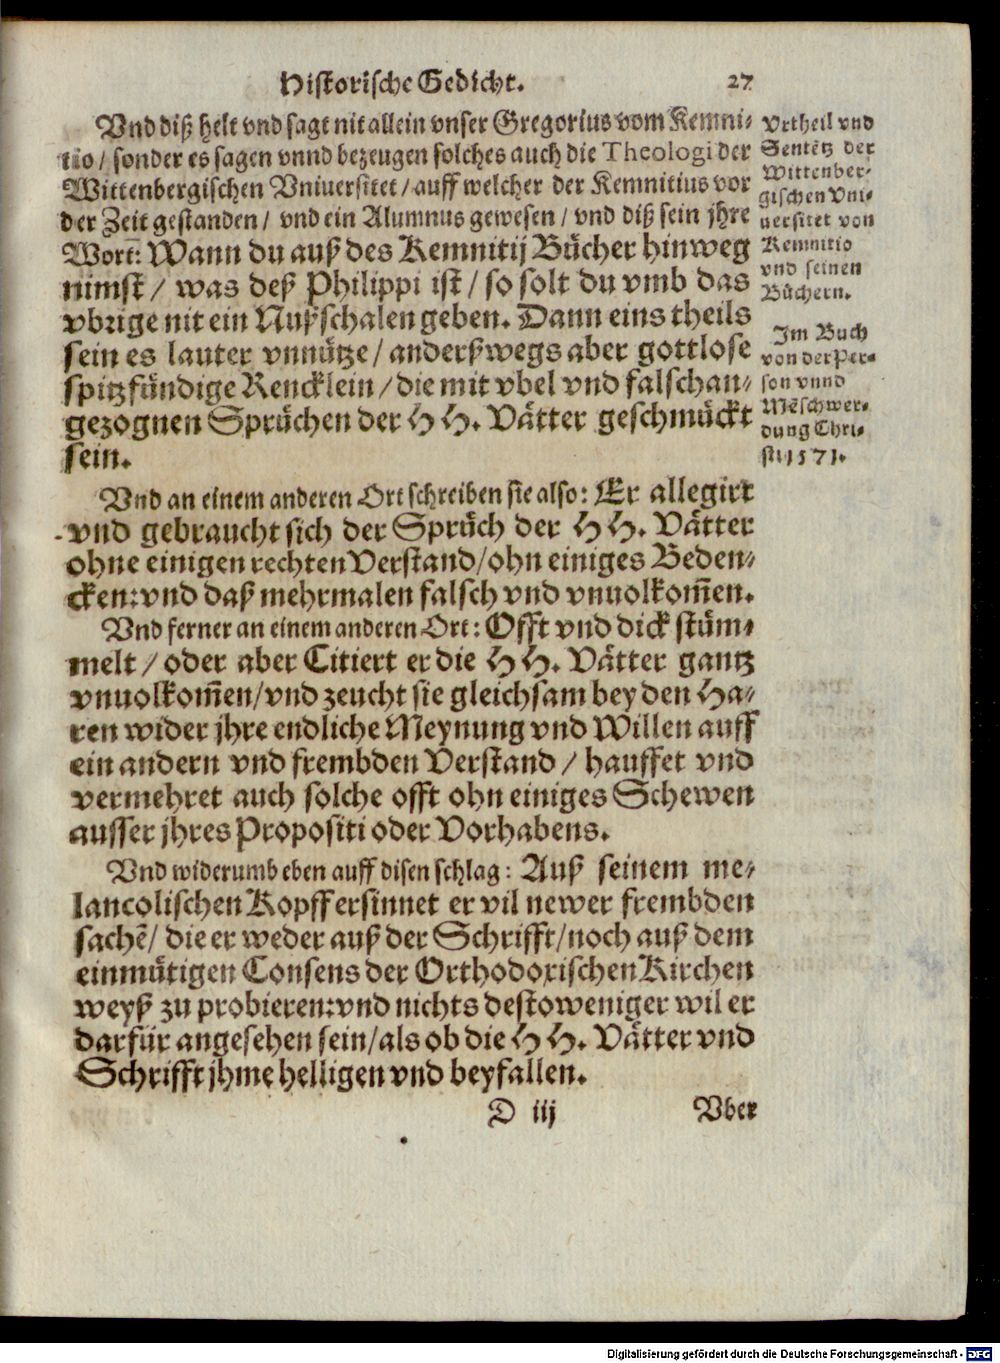 Historische Gedicht. 27
Vnd diß helt vnd sagt nit allein vnser Gregorius vom Kemni-
tio / sonder es sagen vnnd bezeugen solches auch die Theologi der
Wittenbergischen Vniuersitet / auff welcher der Kemnitius vor
der Zeit gestanden / vnd ein Alumnus gewesen / vnd diß sein jhre
Wort: Wann du auß des Kemnitij Bücher hinweg
nimst / was deß Philippi ist / so solt du vmb das
vbrige nit ein Nußschalen geben. Dann eins theils
sein es lauter vnnütze / anderßwegs aber gottlose
spitzfündige Rencklein / die mit vbel vnd falsch an-
gezognen Sprüchen der H H. Vätter geschmückt
sein.
Vrtheil vnd
Sentẽtz der
Wittenber-
gischen Vni-
uersitet von
Kemnitio
vnd seinen
Büchern.
Im Buch
von der Per-
son vnnd
Mẽschwer-
dung Chri-
sti 1571.
Vnd an einem anderen Ort schreiben sie also: Er allegirt
vnd gebraucht sich der Sprüch der H H. Vätter
ohne einigen rechten Verstand / ohn einiges Beden-
cken: vnd daß mehrmalen falsch vnd vnuolkom̃en.
Vnd ferner an einem anderen Ort: Offt vnd dick stüm-
melt / oder aber Citiert er die H H. Vätter gantz
vnuolkom̃en / vnd zeucht sie gleichsam bey den Ha-
ren wider jhre endliche Meynung vnd Willen auff
ein andern vnd frembden Verstand / hauffet vnd
vermehret auch solche offt ohn einiges Schewen
ausser jhres Propositi oder Vorhabens.
Vnd widerumb eben auff disen schlag: Auß seinem me-
lancolischen Kopff ersinnet er vil newer frembden
sachẽ / die er weder auß der Schrifft / noch auß dem
einmütigen Consens der Orthodoxischen Kirchen
weyß zu probieren: vnd nichts destoweniger wil er
darfür angesehen sein / als ob die H H. Vätter vnd
Schrifft jhme helligen vnd beyfallen.
D iij Vber
Digitalisierung gefördert durch die Deutsche Forschungsgemeinschaft - DFG